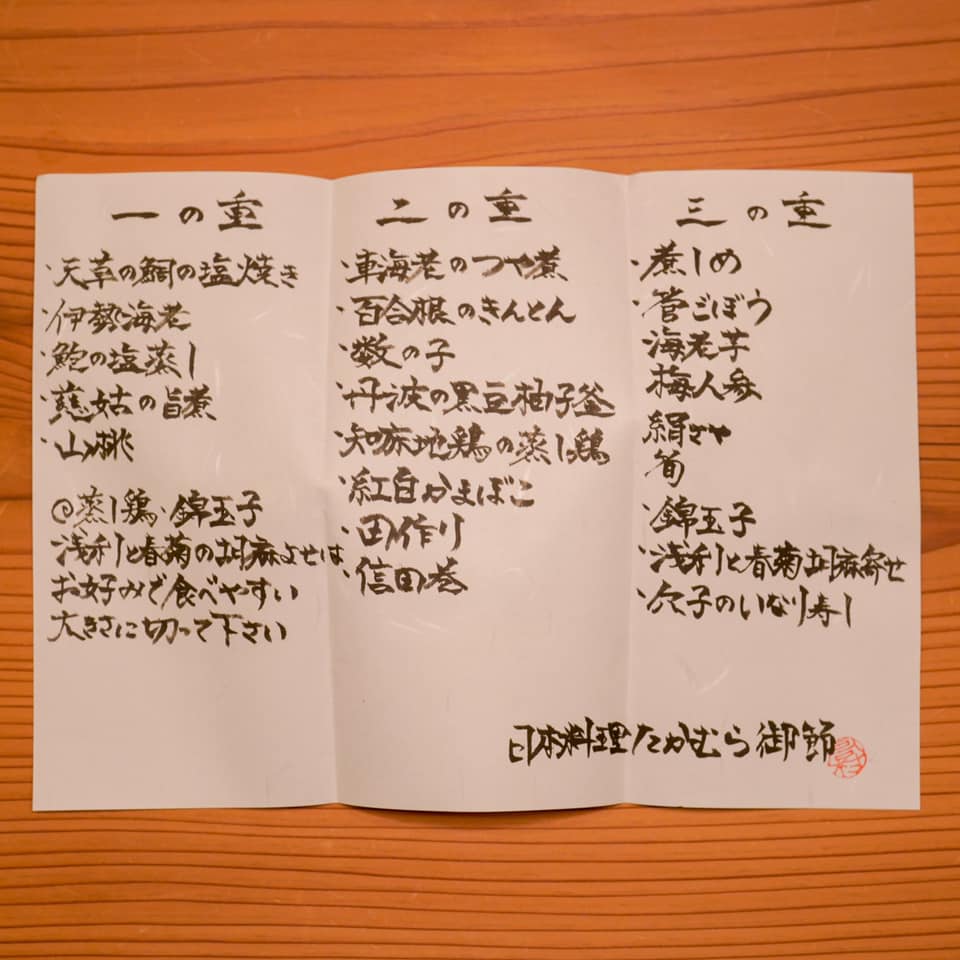 一の重
・天草の鯛の塩焼き
・伊勢海老
・鮑の塩蒸し
・慈姑の旨煮
・山桃
@蒸し鶏・錦玉子
浅利と春菊の胡麻よせは
お好みで食べやすい
大きさに切って下さい
二の重
・車海老のつや煮
・百合根のきんとん
・数の子
・丹波の黒豆柚子釜
・知床地鶏の蒸し鶏
・紅白かまぼこ
・田作り
・信田巻
三の重
・煮しめ
・管ごぼう
海老芋
梅人参
絹さや
筍
・錦玉子
・浅利と春菊胡麻寄せ
・穴子のいなり寿し
日本料理たかむら御節